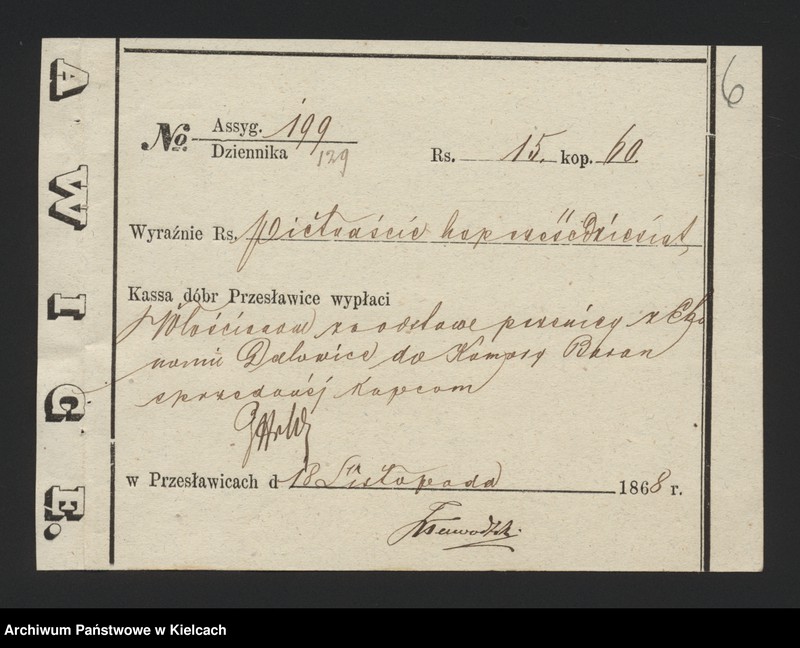 AWICE.
6
No. Assyg. 199
Dziennika 129
Rs. 15. kop. 60.
Wyraźnie Rs. Piętnaście kop sześćdziesiąt,
Kassa dóbr Przesławice wypłaci
Włościanom za odstawę pszenicy z
Dalowice do Komory Baran
sprzedanéj Kupcom
w Przesławicach d 18 Listopada 1868 r.
Archiwum Państwowe w Kielcach